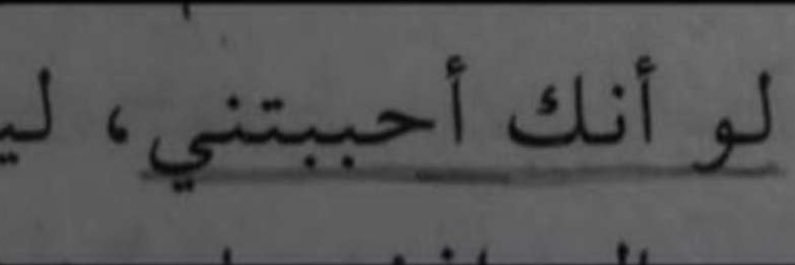 لو أنك أحببتني،